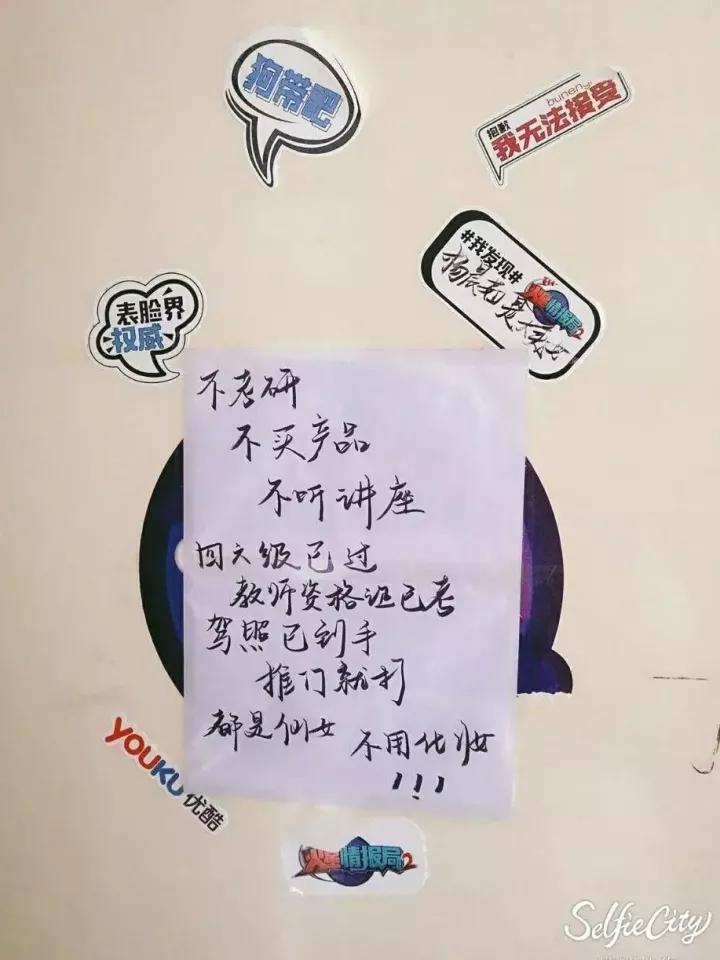 狗带吧
bunengr
抱歉
我无法接受
#我发现#
火星情报局2
表脸界
权威
不考研
不买产品
不听讲座
四六级已过
教师资格证已考
驾照已到手
推门就打
都是仙女 不用化妆
!!!
YOUKU优酷
火星情报局2
SelfieCity